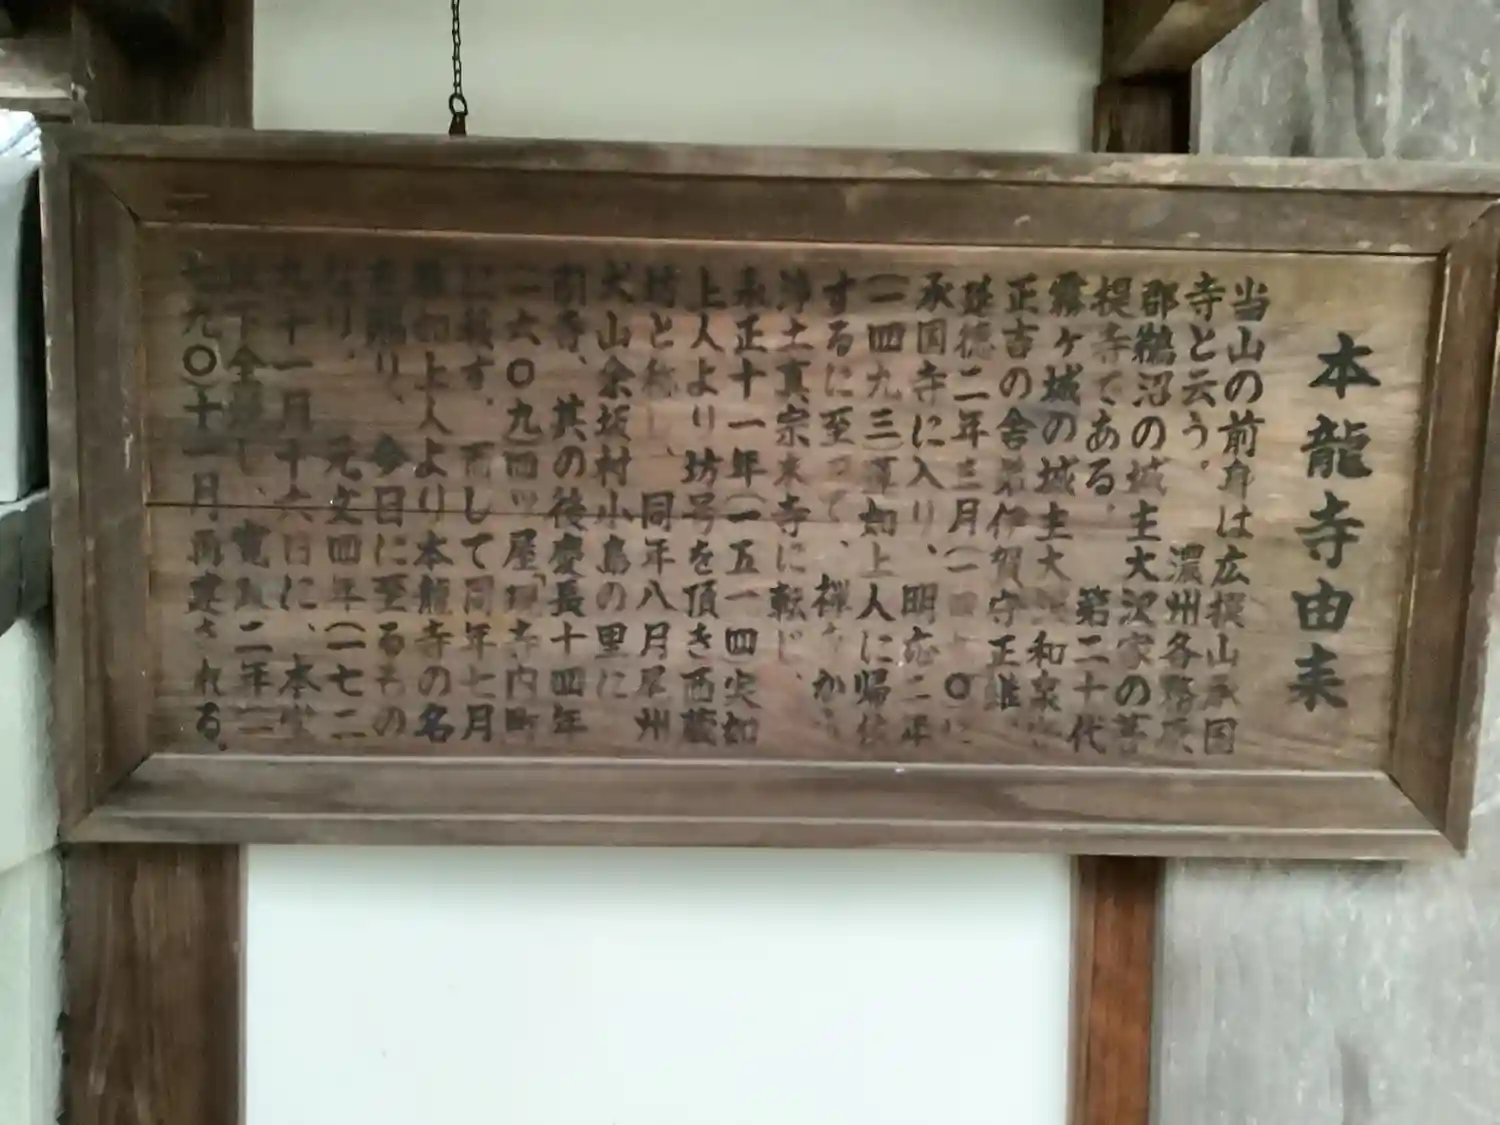 本龍寺由来
当山の前身は広撰山承国
寺と云う。濃州各務原
郡鵜沼の城主大沢家の菩
提寺である。第二十代
霧ヶ城の城主大沢和泉守
正吉の舎弟伊賀守正継、
延徳二年三月(一四九〇)に
承国寺に入り、明応二年
(一四九三)蓮如上人に帰依
するに至って、禅宗から
浄土真宗来寺に転じ、
永正十一年(一五一四)実如
上人より坊号を頂き西蔵
坊と称し、同年八月尾州
犬山余坂村小島の里に
引寺、其の後慶長十四年
(一六〇九)四ツ屋「現寺内町
に移す。而して同年七月
如上人より本龍寺の名
を賜り、今日に至るもの
なり。元文四年(一七二
九)十一月十六日に、本堂
以下全焼し、寛政二年(一
七九〇)十一月再建される。